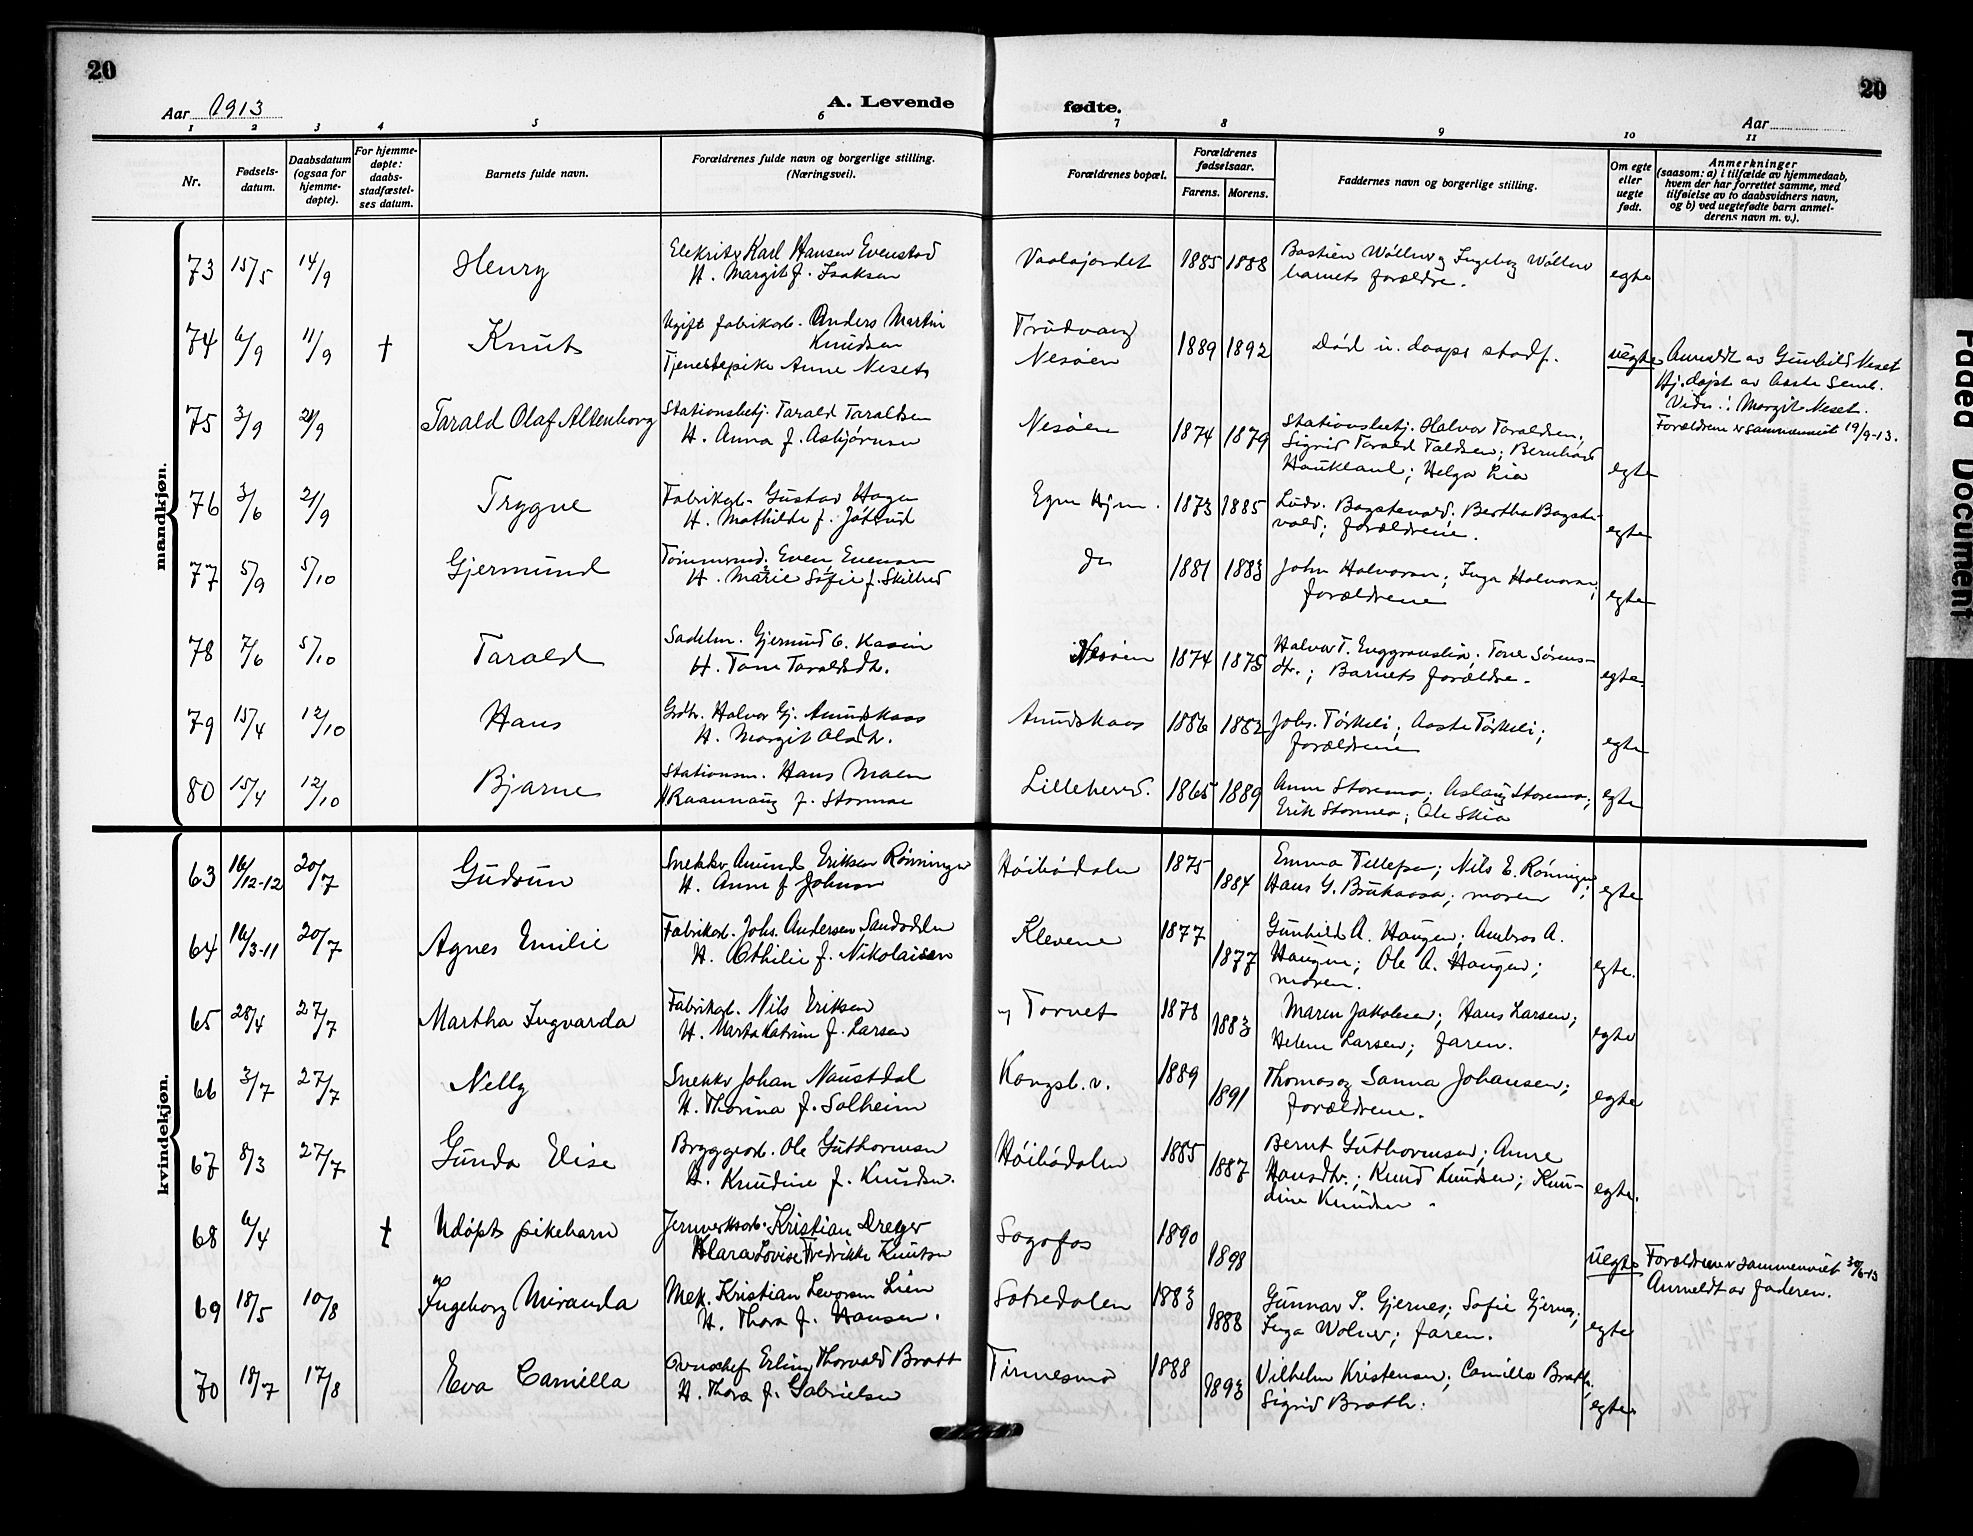 20
20
Aar 1913
A. Levende
fødte.
Aar
1 2 3 4 5 6 7 8 9 10 11
Nr.
Fødsels-
datum.
Daabsdatum
(ogsaa for
hjemme-
døpte).
For hjemme-
døpte:
daabs-
stadfæstel-
ses datum.
Barnets fulde navn.
Forældrenes fulde navn og borgerlige stilling.
(Næringsvei).
Forældrenes bopæl.
Forældrenes
fødselsaar.
Farens. Morens.
Faddernes navn og borgerlige stilling.
Om egte
eller
uegte
født.
Anmerkninger
(saasom: a) i tilfælde av hjemmedaab,
hvem der har forrettet samme, med
tilføielse av to daabsvidners navn,
og b) ved uegtefødte barn anmel-
derens navn m. v.).
mandkjøn.
73 15/5 14/9 Henry
Karl Hansen Evenstad
H. Margit f. Isaksen
1885 1888
Bastien Wöllner og Ingeborg Wöllner
barnets forældre.
egte
74 6/9 11/9 † Knut
Ugift fabrikarb. Anders Martin
Knudsen
Tjenestepike Anne Neset
Trudvang
Nesøen
1889 1892
Død u. daaps stadf.
uegte
Anmeldt av Gunhild Neset
Hj. døpt av Aaste Seml.
Vidn.: Margit Neset.
Forældrene er sammenviet 19/9-13.
75 3/9 21/9 Tarald Olaf Altenborg
Stationsbetj. Tarald Taraldsen
H. Anna f. Asbjørnsen
Nesøen
1874 1879
Stationsbetj. Halvor Taraldsen;
Sigrid Tarald Taldsen; Bernhard
Haukland; Helga Lia
egte
76 3/6 21/9 Trygve
Fabrikarb. Gustav Hagen
H. Mathilde f.
Egne Hjem.
1873 1885
Ludv. Bagstevold. Bertha Bagste-
vold; forældrene.
egte
77 5/9 5/10 Gjermund
Tømmermd. Even Evensen
H. Marie Sofie f. Skilbred
do
1881 1883
John Halvorsen; Inga Halvorsen;
forældrene
egte
78 7/6 5/10 Tarald
Sadelm. Gjermund G. Kasin
H. Tone Taraldsdtr.
Nesøen
1874 1875
Halvor T. Enggravslia; Tone Sørens-
dtr.; Barnets forældre.
egte.
79 15/4 12/10 Hans
Grdbr. Halvor Gj. Amundskaas
H. Margit Olsdtr.
Amundskaas
1886 1882
Johs. Tørkeli; Aaste Tørkeli;
forældrene
egte
80 15/4 12/10 Bjarne
Stationsm. Hans Moen
H Raannaug f. Stormoe
Lilleherred.
1865 1889
Anne Storemo; Aslaug Storemo;
Erik Stormeo; Ole Skia
egte
kvindekjøn.
63 16/12-12 20/7 Gudrun
Snekker Amund Eriksen Rønningen
H. Anne f Johnsen
Høibødalen
1875 1884
Emma Tellefsen; Nils E. Rønningen;
Hans G. Brukaasa; moren
egte
64 16/3-11 20/7 Agnes Emilie
Fabrikarb. Johs. Andersen Sandodden
H. Othilie f. Nikolaisen
Klevene
1877 1877
Gunhild A. Haugen; Ambros A.
Haugen; Ole A. Haugen;
moren.
egte.
65 28/4 27/7 Martha Ingvarda
Fabrikarb. Nils Eriksen
H. Marta Katrine f. Larsen
Torvet
1878 1883
Maren Jakobsen; Hans Larsen;
Helene Larsen; faren.
egte
66 3/7 27/7 Nelly
Snekker Johan Naustdal
H. Thorina f. Solheim
Kongsb. v.
1889 1891
Thomas og Sanna Johansen;
forældrene.
egte
67 8/3 27/7 Gunda Elise
Bryggearb. Ole Guthormsen
H. Knudine f. Knudsen.
Høibødalen
1885 1887
Bernt Guthormsen; Anne
Hansdtr.; Knud Knudsen; Knu-
dine Knudsen.
egte.
68 6/4 † Udøpt pikebarn
Jernverksarb. Kristian Dreyer
Klara Lovise Fredrikke Knutsen
Sagafos
1890 1898
uegte
Forældrene er sammenviet 30/6-13
Anmeldt av faderen.
69 18/5 10/8 Ingeborg Miranda
Mek. Kristian Levorsen Lien
H. Thora f. Hansen.
Sætredalen
1883 1888
Gunnar T. Gjernes; Sofie Gjernes;
Inga Wolner; faren.
egte
70 18/7 17/8 Eva Camilla
Ovnschef Erling Thorvald Brott
H. Thora f. Gabrielsen
Tinnesmo
1888 1893
Vilhelm Kristensen; Camilla Broth;
Sigrid Broth.
egte.
Paged Document